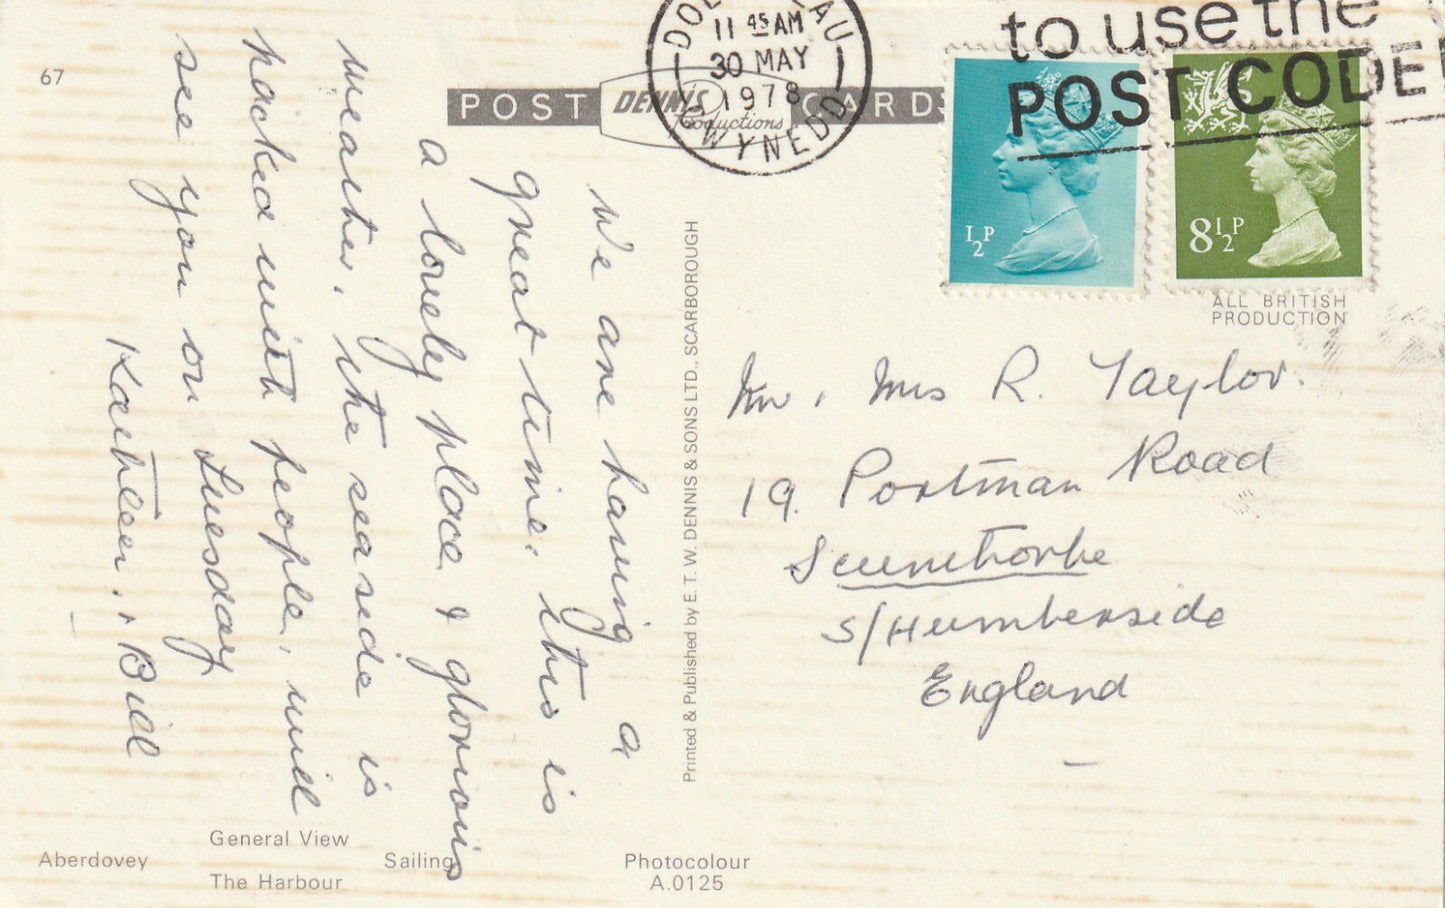 67
POST CARD
DENNIS
Productions
11 45 AM
30 MAY
1978
GWYNEDD
to use the
POST CODE
½P
8½P
ALL BRITISH
PRODUCTION
We are having a
great time, this is
a lovely place & glorious
weather, the seaside is
packed with people, will
see you on Tuesday
Kathleen + Bill
Printed & Published by E. T. W. DENNIS & SONS LTD., SCARBOROUGH
Mr, Mrs R. Taylor.
19. Portman Road
Scunthorpe
S/Humberside
England
General View
Aberdovey Sailing
The Harbour
Photocolour
A.0125